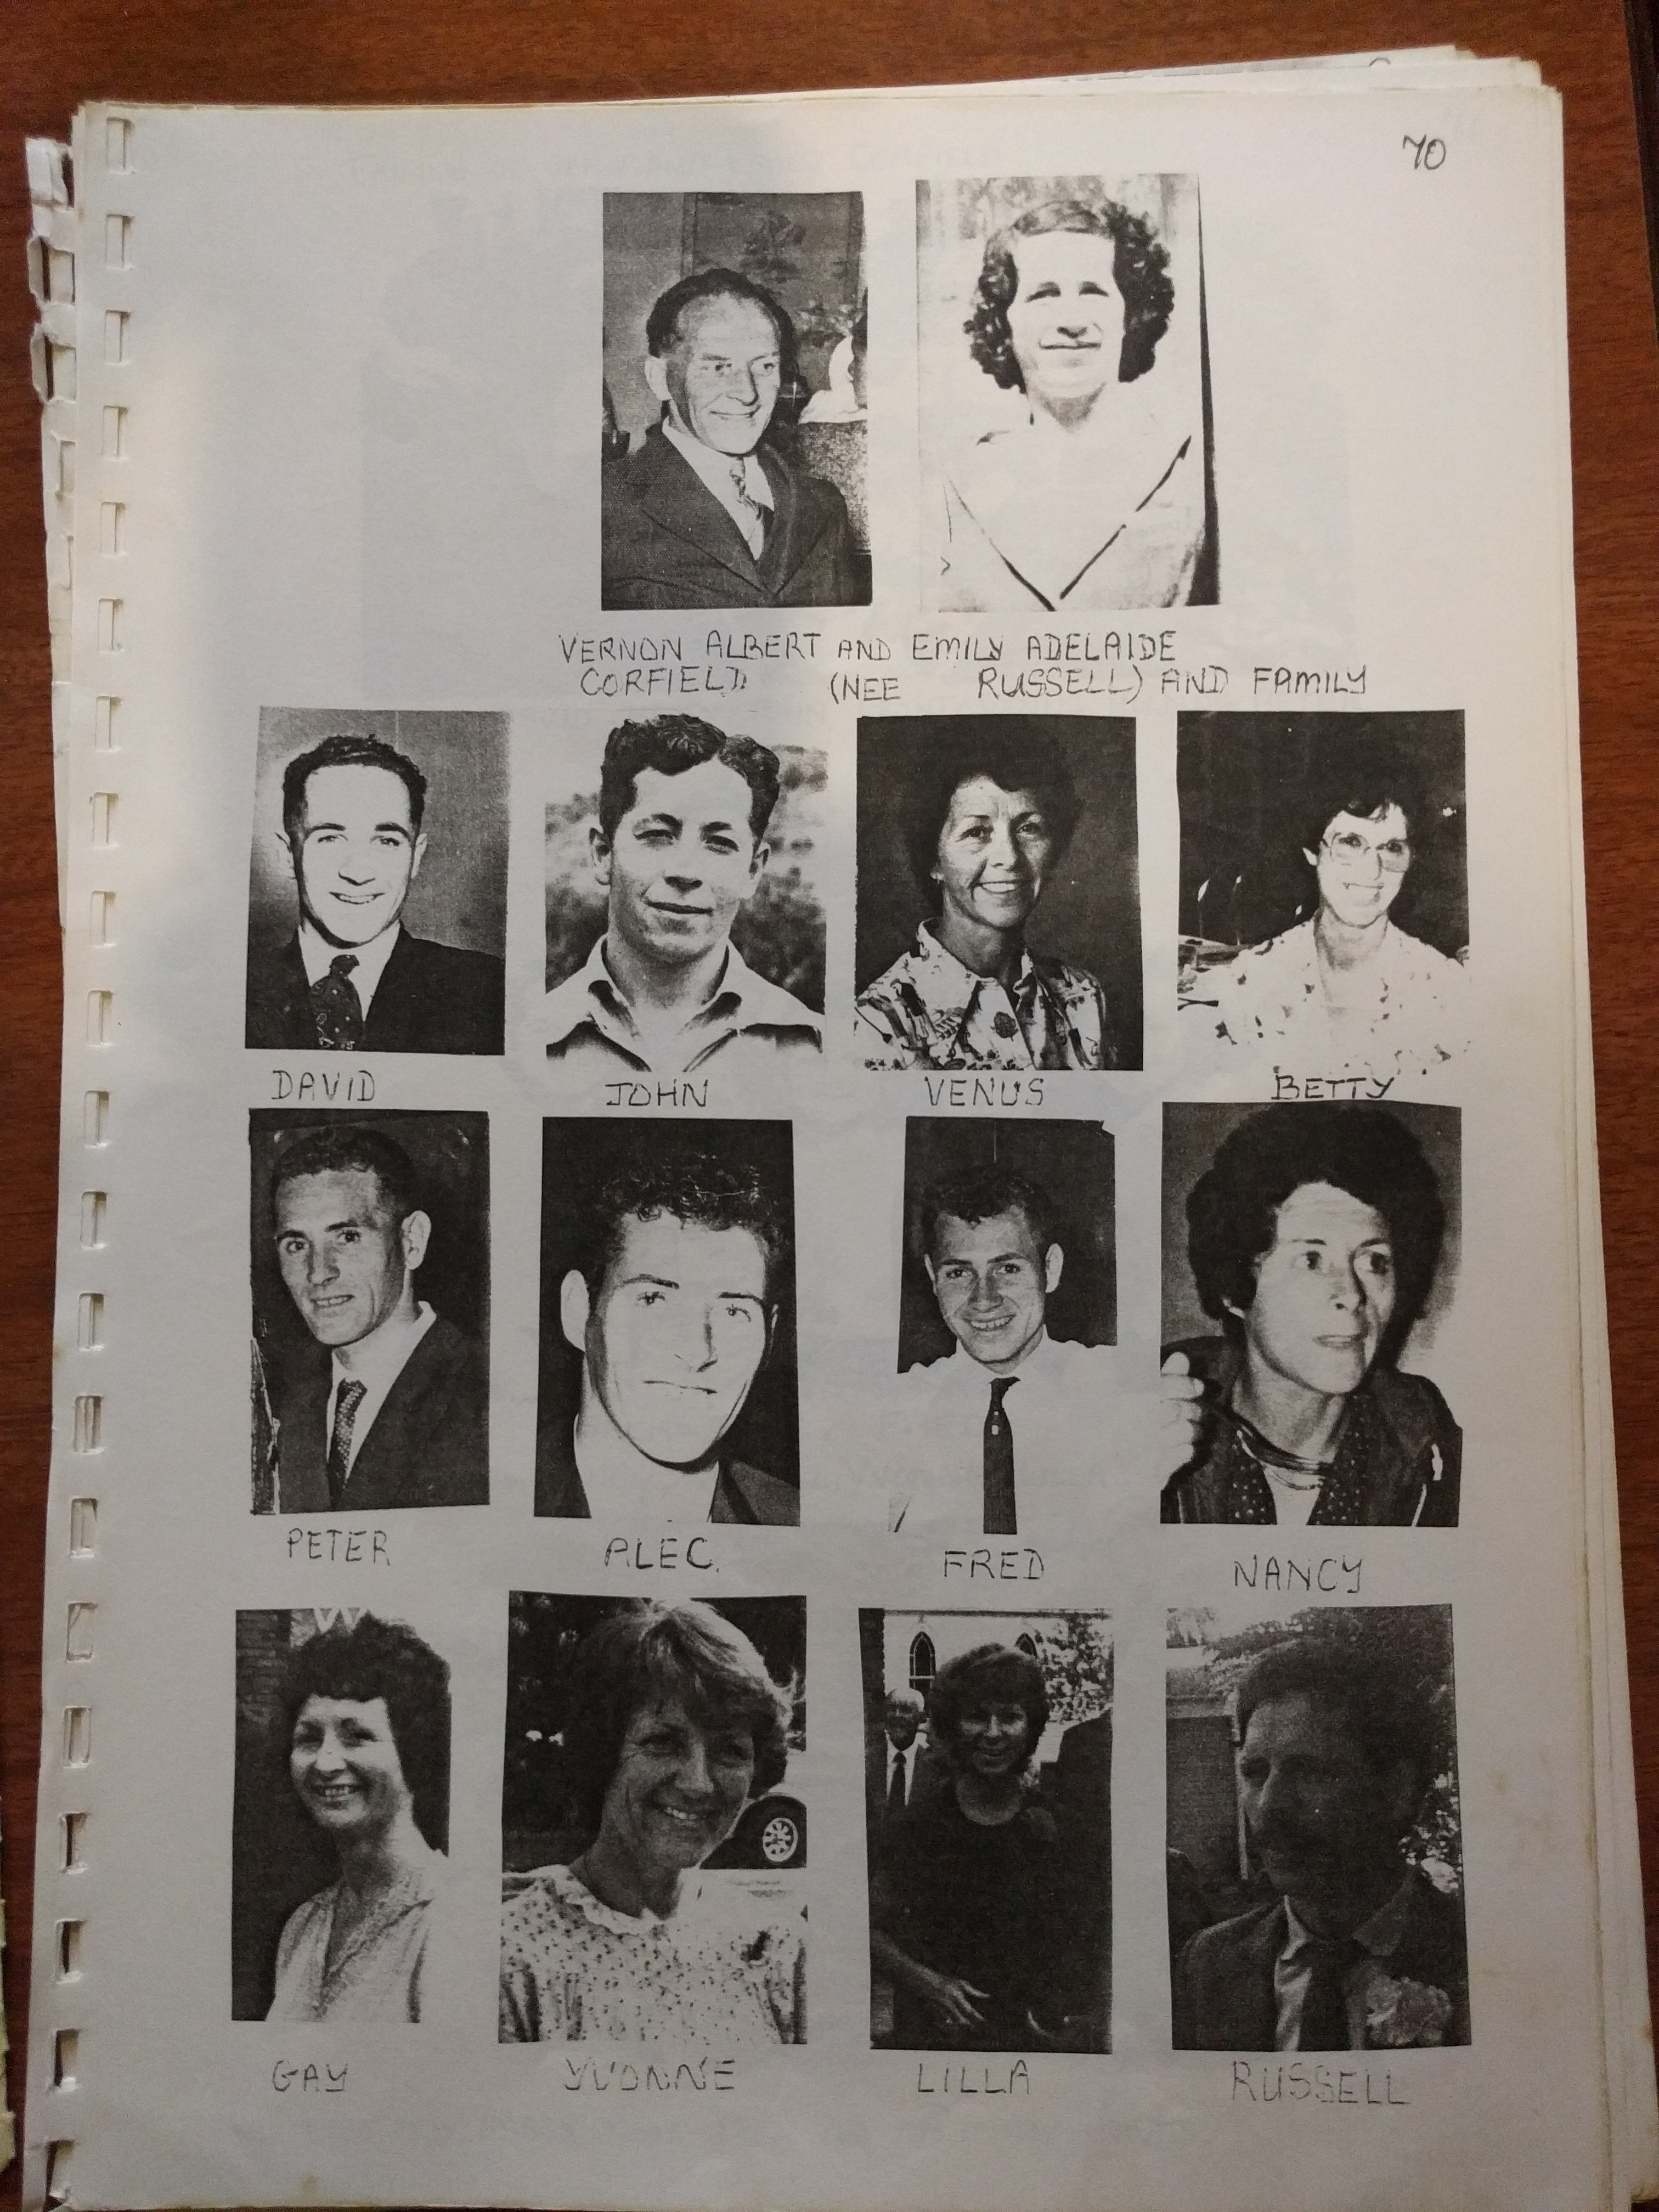 70
VERNON ALBERT AND EMILY ADELAIDE
CORFIELD (NEE RUSSELL) AND FAMILY
DAVID JOHN VENUS BETTY
PETER ALEC. FRED NANCY
GAY YVONNE LILLA RUSSELL